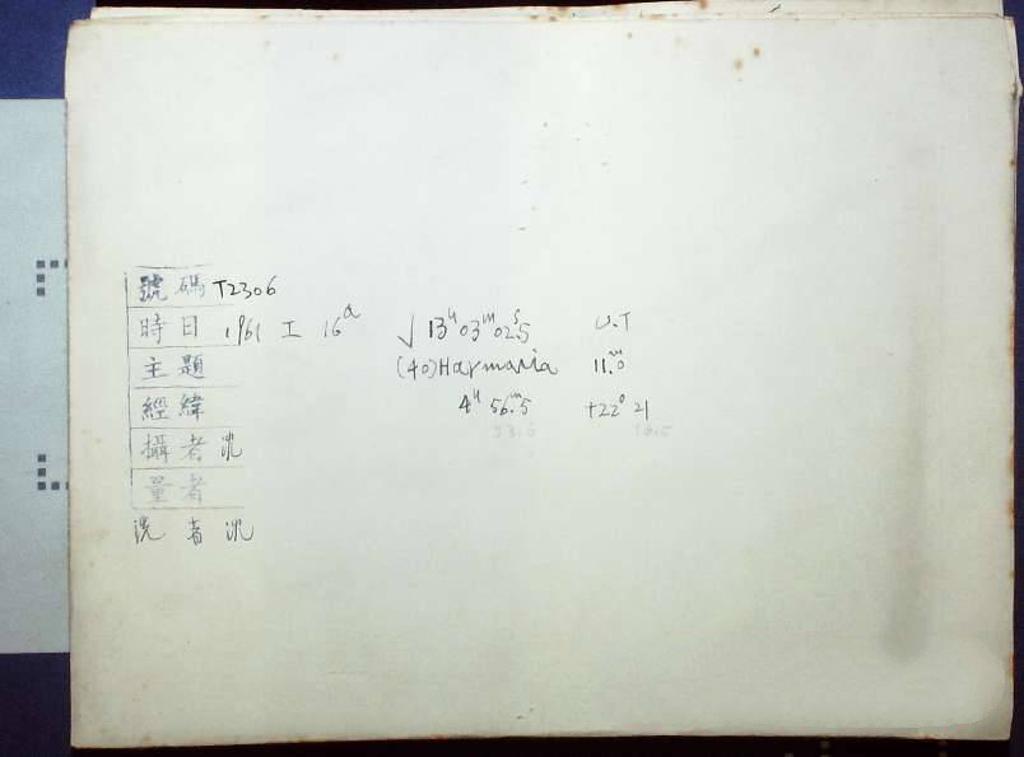 號碼 T2306
時日 1961 I 16ᵈ √ 13ʰ 03ᵐ 02ˢ.5 U.T
主題 (40) Harmonia 11ᵐ.0
經緯 4ʰ 56ᵐ.5 +22° 21
33.6 16.5
攝者 沈
量者
洗者 沈